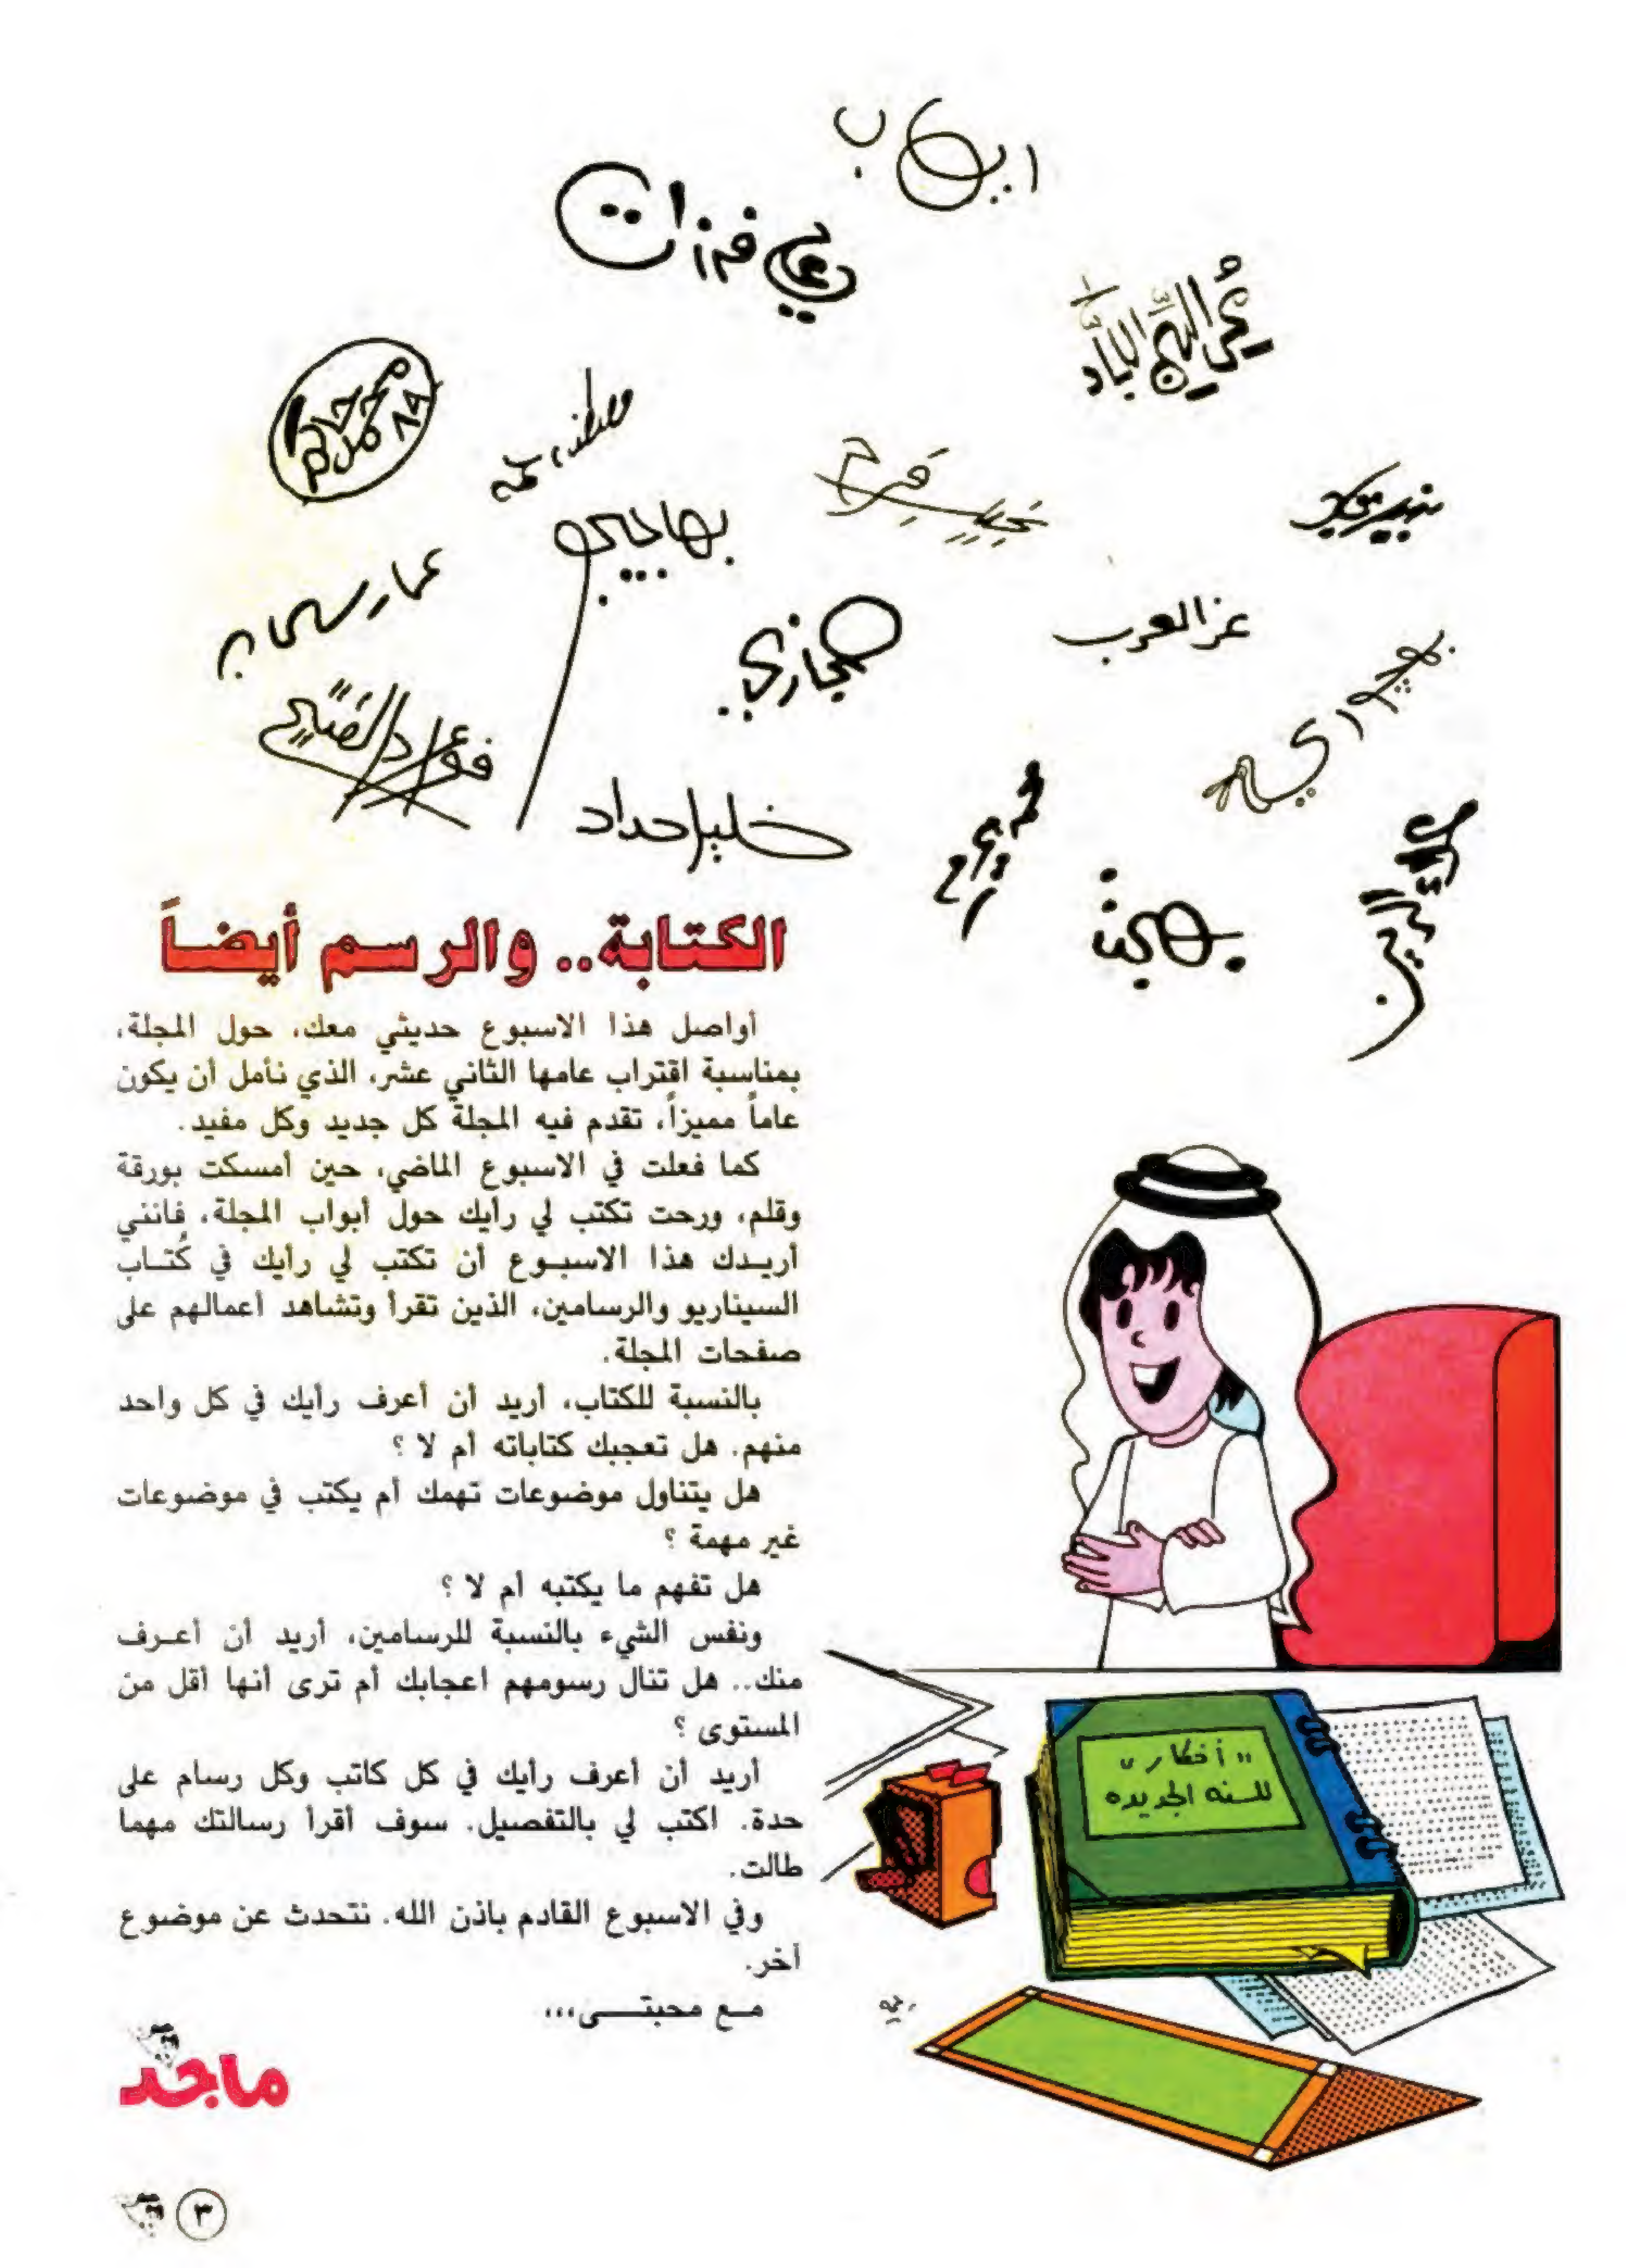 ايهاب
علي فرزات
محمد حاكم
٨٩
حجازي
بهاجيجي
عز العرب
عمار سلمان
فؤاد الفتيح
خليل حداد
بهجت
الكتابة.. والرسم أيضاً
أواصل هذا الاسبوع حديثي معك، حول المجلة،
بمناسبة اقتراب عامها الثاني عشر، الذي نأمل أن يكون
عاماً مميزاً، تقدم فيه المجلة كل جديد وكل مفيد.
كما فعلت في الاسبوع الماضي، حين أمسكت بورقة
وقلم، ورحت تكتب لي رأيك حول أبواب المجلة، فانني
أريـدك هذا الاسبـوع أن تكتب لي رأيك في كُتـاب
السيناريو والرسامين، الذين تقرأ وتشاهد أعمالهم على
صفحات المجلة.
بالنسبة للكتاب، أريد أن أعرف رأيك في كل واحد
منهم. هل تعجبك كتاباته أم لا ؟
هل يتناول موضوعات تهمك أم يكتب في موضوعات
غير مهمة ؟
هل تفهم ما يكتبه أم لا ؟
ونفس الشيء بالنسبة للرسامين، أريد أن أعـرف
منك.. هل تنال رسومهم اعجابك أم ترى أنها أقل من
المستوى ؟
أريد أن أعرف رأيك في كل كاتب وكل رسام على
حدة. اكتب لي بالتفصيل. سوف أقرأ رسالتك مهما
طالت.
وفي الاسبوع القادم باذن الله. نتحدث عن موضوع
أخر.
مـع محبتـــى،،،
ماجد
"أفكار"
للسنه الجديده
٣